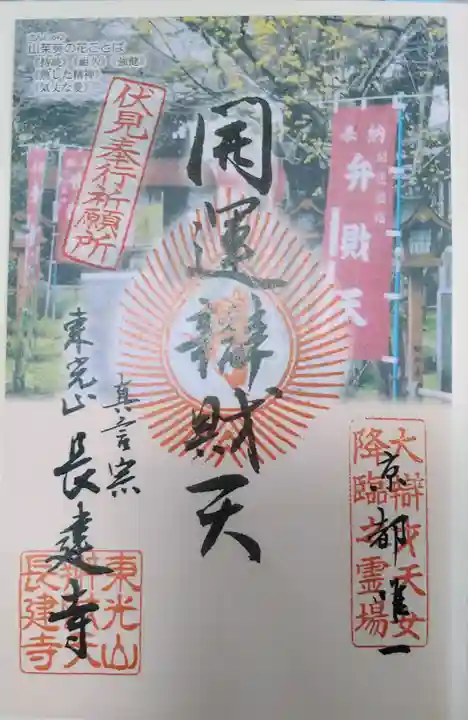 山茱萸の花ことば
《持続》《耐久》《強健》
《熟した精神》
《気丈な愛》
伏見奉行祈願所
奉納
弁財天
開運辯財天
京都唯一
大辯才天女
降臨之霊場
真言宗
東光山 長建寺
東光山
辯財天
長建寺